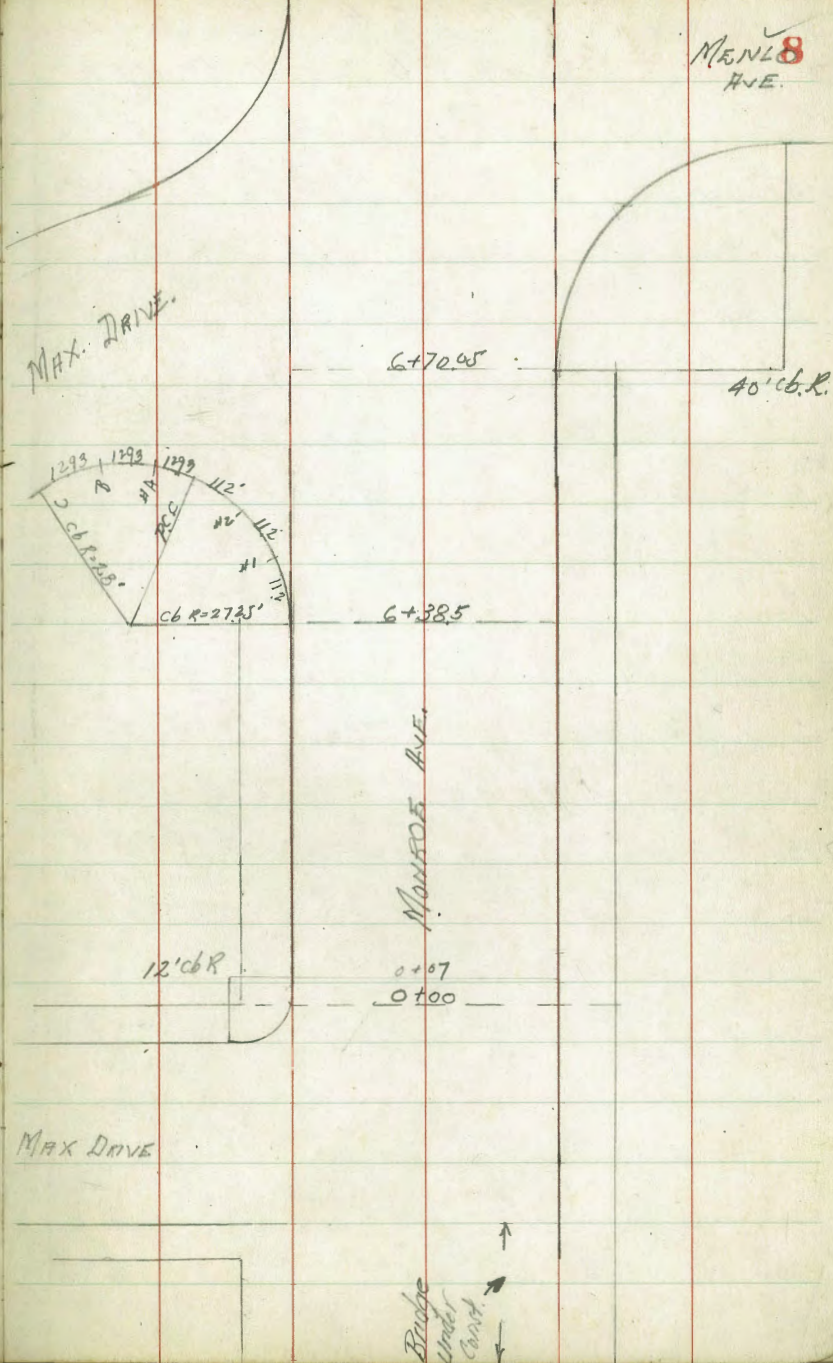 8
MENLO
AVE.
MAX. DRIVE.
6+70.05
40' Cb. R.
1293 1293 1293
B
#A
PCC
112'
#2'
112
#1
112
Cb R=27.25'
6+38.5
MONROE AVE.
12' Cb R
0+07
0+00
MAX DRIVE
Bridge
under
Const.